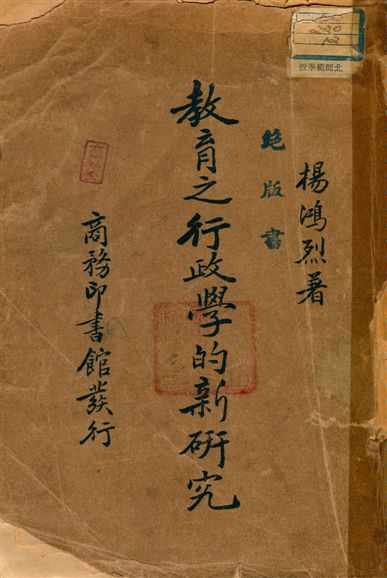 楊鴻烈著
絶版書
教育之行政學的新研究
商務印書館發行
北師範學校